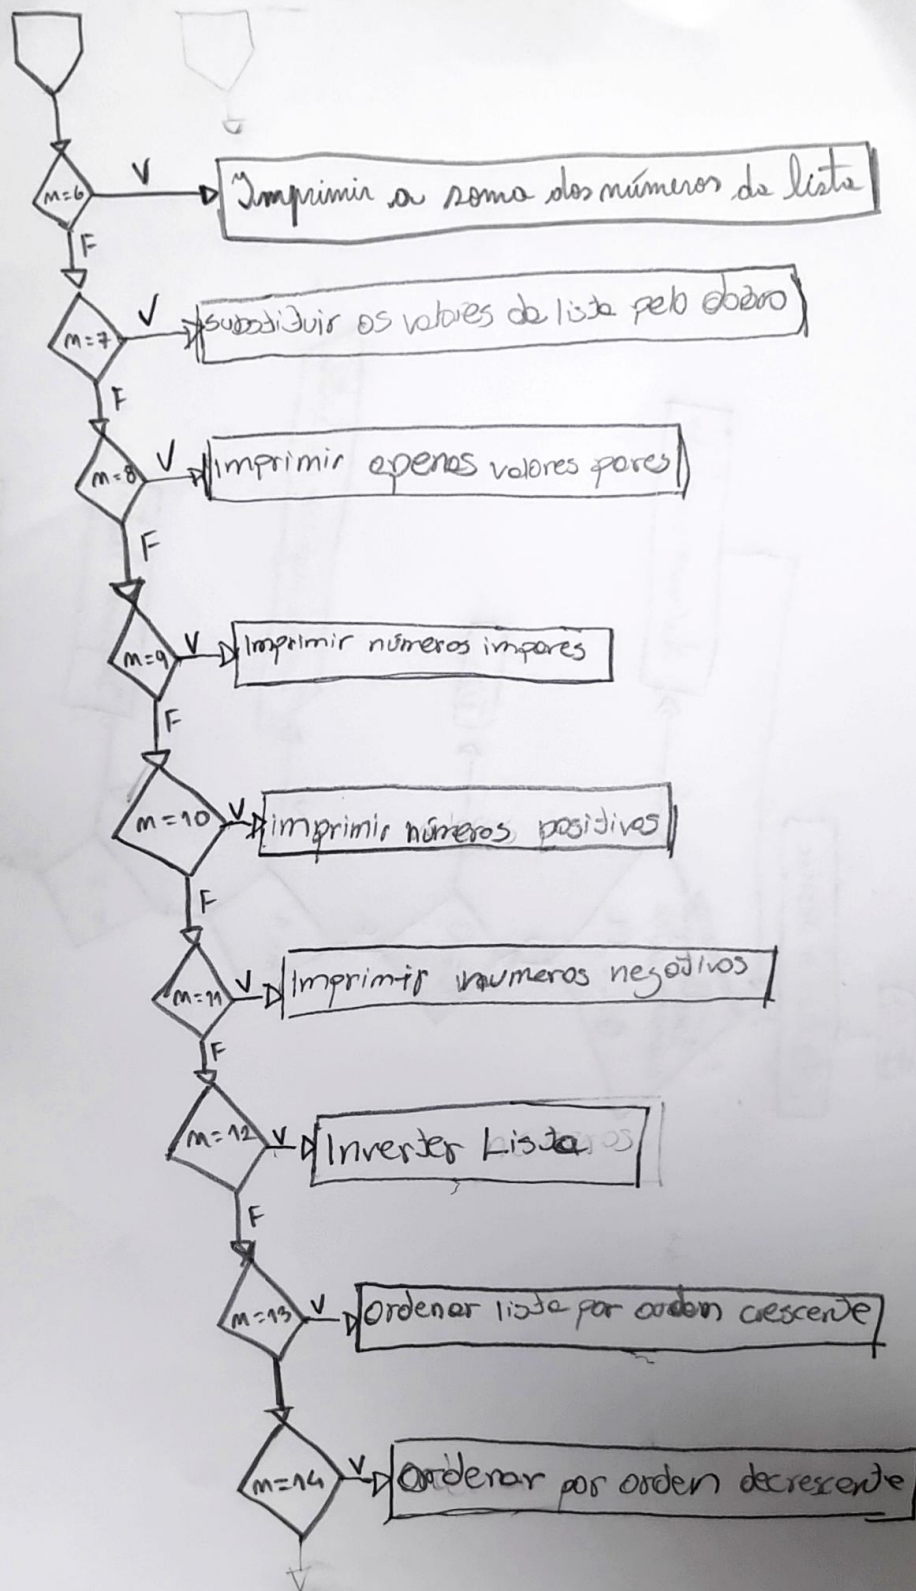 m=6 V Imprimir a soma dos números da lista
F
m=7 V substituir os valores da lista pelo dobro
F
m=8 V imprimir apenas valores pares
F
m=9 V Imprimir números impares
F
m=10 V imprimir números positivos
F
m=11 V Imprimir numeros negativos
F
m=12 V Inverter Lista
F
m=13 V Ordenar lista por ordem crescente
m=14 V Ordenar por orden decrescente